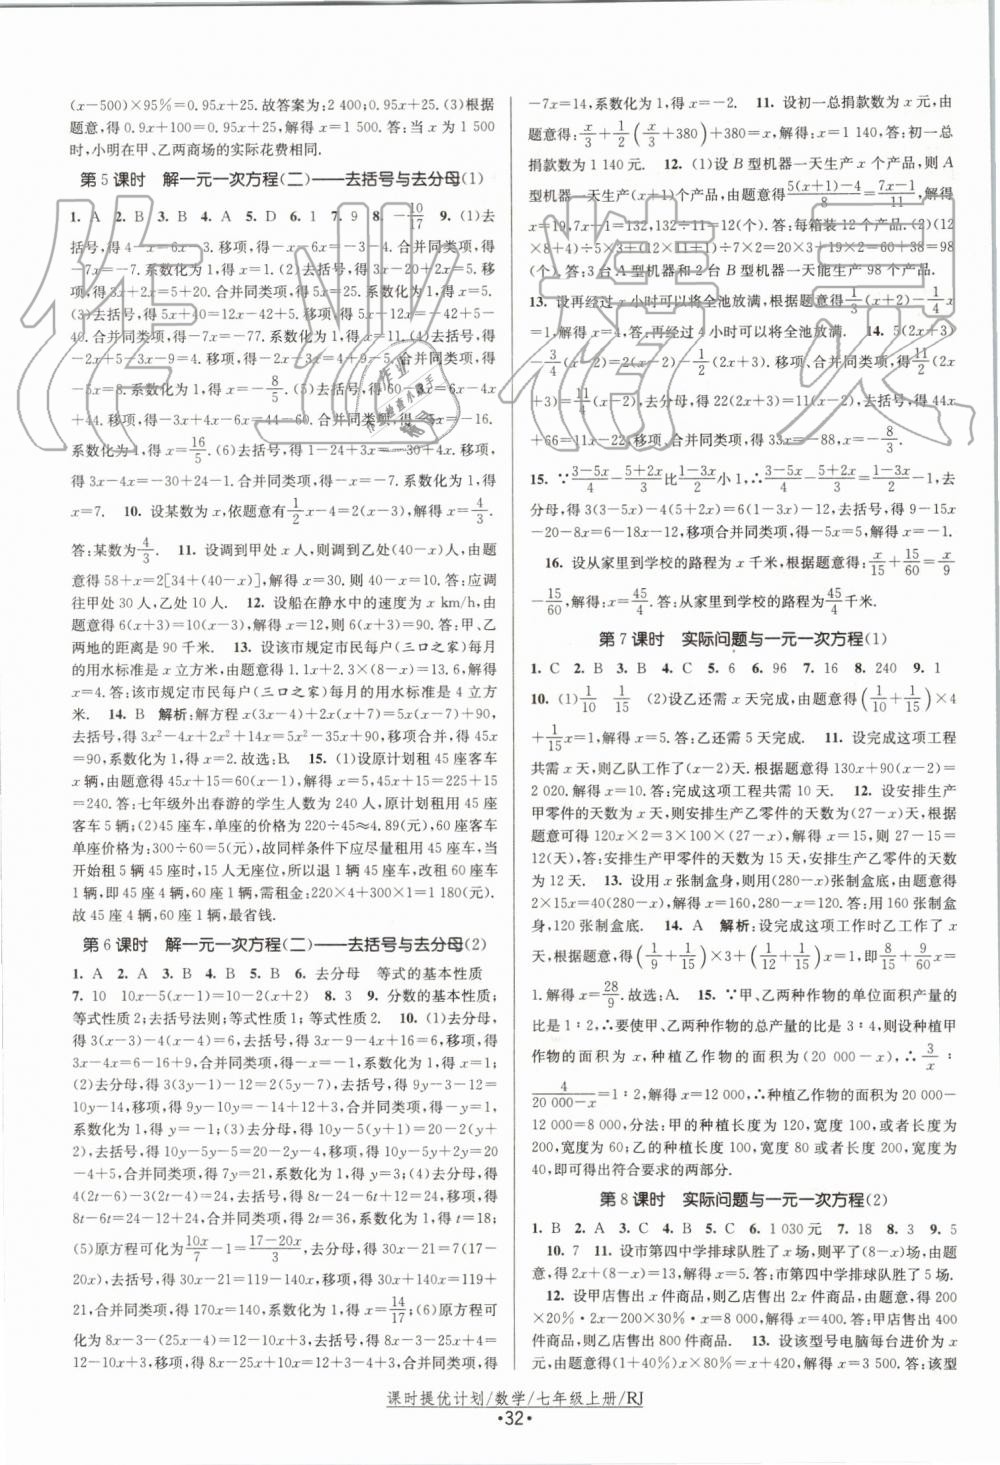 (x-500)×95%=0.95x+25.故答案为:2 400;0.95x+25.(3)根据
题意,得 0.9x+100=0.95x+25,解得 x=1 500.答:当 x 为 1 500
时,小明在甲、乙两商场的实际花费相同.
第 5 课时 解一元一次方程(二)——去括号与去分母(1)
1. A 2. B 3. B 4. A 5. D 6. 1 7. 9 8. -10/17 9. (1)去
括号,得 4-x-6x=3.移项,得-x-6x=3-4.合并同类项,得
-7x=-7.系数化为 1,得 x=
(2)去括号,得
5x=25.系数化为 1,得 x=5.
(3)去括号,得 5x+40=12x-42+5.移项,得 5x-12x=-42+5-
40.合并同类项,得-7x=-77.系数化为 1,得 x=11.(4)去括号,得
-2x+5-3x-9=4.移项,得-2x-3x=4+9-5.合并同类项,得
-5x=8.系数化为 1,得 x=-8/5.(5)去括号,得 60-3x=6x-4x
+44.移项,得-3x-6x+4x=44-60.合并同类项,得-5x=-16.
系数化为 1,得 x=16/5.(6)去括号,得 3x-24+1=4x-30+4.移项,得
3x-4x=-30+24-1.合并同类项,得-x=-7.系数化为 1,得
x=7. 10. 设某数为 x,依题意有1/2x-4=2(x-3),解得 x=4/3.
答:某数为4/3. 11. 设调到甲处 x 人,则调到乙处(40-x)人,由题
意得 58+x=2[34+(40-x)],解得 x=30.答:应调
往甲处 30 人,乙处 10 人. 12. 设船在静水中的速度为 x km/h,由
题意得 6(x+3)=10(x-3),解得 x=12,6(x+3)=90.答:甲、乙
两地的距离是 90 千米. 13. 设该市规定市民每户(三口之家)每月
的用水标准是 x 立方米,由题意得 1.3x+2.3×(8-x)=13.6,解得
x=4.答:该市规定市民每户(三口之家)每月的用水标准是 4 立方
米. 14. B 解析:解方程 x(3x-4)+2x(x+7)=5x(x-7)+90,
去括号,得 3x²-4x+2x²+14x=5x²-35x+90,移项合并,得 45x
=90,系数化为 1,得 x=2.故选:B. 15. (1)设原计划租用 45 座客车
x 辆,由题意得 45x+15=60(x-1),解得 x=5,45x+15=225+15
=240.答:七年级外出春游的学生人数为 240 人,原计划租用 45 座
客车 5 辆;(2)45 座车,单座的价格为 220÷45≈4.89(元),60 座车
单座价格为:300÷60=5(元),故同样条件下应尽量租用 45 座车,
因为租用 5 辆 45 座车,15 人无座位,所以退 1 辆 45 座车,改租 60 座车
1 辆,即 45 座 4 辆,60 座 1 辆,需租金:220×4+300×1=1 180(元).
故 45 座 4 辆,60 座 1 辆,最省钱.
第 6 课时 解一元一次方程(二)——去括号与去分母(2)
1. A 2. A 3. D 4. B 5. B 6. 去分母 等式的基本性质
7. 10 10x-5(x-1)=10-2(x+2) 8. 3 9. 分数的基本性质;
等式性质 2;去括号法则;等式性质 1;等式性质 2. 10. (1)去分母,
得 3(x-3)-4(x-4)=6,去括号,得 3x-9-4x+16=6,移项,得
3x-4x=6-16+9,合并同类项,得-x=-1,系数化为 1,得 x=1;
(2)去分母,得 3(3y-1)-12=2(5y-7),去括号,得 9y-3-12=
10y-14,移项,得 9y-10y=-14+12+3,合并同类项,得-y=1,
系数化为 1,得 y=-1;(3)去分母,得 10y-5(y+1)=20-2(y+
2),去括号,得 10y-5y-5=20-2y-4,移项,得 10y-5y+2y=20
-4+5,合并同类项,得 7y=21,系数化为 1,得 y=3;(4)去分母,得
4(2t-6)-3(2t-4)=24,去括号,得 8t-24-6t+12=24,移项,得
8t-6t=24+24-12,合并同类项,得 2t=36,系数化为 1,得 t=18;
(5)原方程可化为10x/7-1=(17-20x)/3,去分母,得 30x-21=7(17-
20x),去括号,得 30x-21=119-140x,移项,得 30x+140x=119+
21,合并同类项,得 170x=140,系数化为 1,得 x=14/17;(6)原方程可
化为 8x-3-(25x-4)=12-10x+3,去括号,得 8x-3-25x+4=
12-10x+3,移项,得 8x-25x+10x=12+3-4+3,合并同类项,得
-7x=14,系数化为 1,得 x=-2. 11. 设初一总捐款数为 x 元,由
题意得:x/3+1/2(x/3+380)+380=x,解得 x=1 140,答:初一总
捐款数为 1 140 元. 12. (1)设 B 型机器一天生产 x 个产品,则 A
型机器一天生产(x+1)个产品,由题意得(5(x+1)-4)/8=(7x-1)/11,解得
x=19,7x-1=132,132÷11=12(个).答:每箱装 12 个产品.(2)(12
×8+4)÷5×3+(12×11+1)÷7×2=20×3+19×2=60+38=98
(个).答:3 台 A 型机器和 2 台 B 型机器一天能生产 98 个产品.
13. 设再经过 x 小时可以将全池放满,根据题意得1/3(x+2)-1/4x
=1,解得 x=4.答:再经过 4 小时可以将全池放满. 14. 5(2x+3)-
3/4(x-2)=2(x-2)-1/2(2x+3),移项、合并同类项,得11/2(2x
+3)=11/4(x-2),去分母,得 22(2x+3)=11(x-2),去括号,得 44x
+66=11x-22,移项、合并同类项,得 33x=-88,x=-8/3.
15. ∵(3-5x)/4-(5+2x)/3比(1-3x)/2小 1,∴(3-5x)/4-(5+2x)/3=(1-3x)/2-1,去
分母,得 3(3-5x)-4(5+2x)=6(1-3x)-12,去括号,得 9-15x
-20-8x=6-18x-12,移项合并同类项,得-5x=5,解得 x=-1.
16. 设从家里到学校的路程为 x 千米,由题意得:x/15+15/60=x/9
-15/60,解得:x=45/4.答:从家里到学校的路程为45/4千米.
第 7 课时 实际问题与一元一次方程(1)
1. C 2. B 3. B 4. C 5. 6 6. 96 7. 16 8. 240 9. 1
10. (1)1/10 1/15 (2)设乙还需 x 天完成,由题意得(1/10+1/15)×4
+1/15x=1,解得 x=5.答:乙还需 5 天完成. 11. 设完成这项工程
共需 x 天,则乙队工作了(x-2)天.根据题意得 130x+90(x-2)=
2 020.解得 x=10.答:完成这项工程共需 10 天. 12. 设安排生产
甲零件的天数为 x 天,则安排生产乙零件的天数为(27-x)天,根据
题意可得 120x×2=3×100×(27-x),解得 x=15,则 27-15=
12(天),答:安排生产甲零件的天数为 15 天,安排生产乙零件的天数
为 12 天. 13. 设用 x 张制盒身,则用(280-x)张制盒底,由题意,得
2×15x=40(280-x),解得 x=160,280-x=120.答:用 160 张制盒
身,120 张制盒底. 14. A 解析:设完成这项工作时乙工作了 x
天,由题意得:(1/9+1/15)×3+(1/12+1/15)x=1,即8/15+9/60x=
1.解得 x=28/9.故选:A. 15. ∵甲、乙两种作物的单位面积产量的
比是 1∶2,∴要使甲、乙两种作物的总产量的比是 3∶4,则设种植甲
作物的面积为 x,种植乙作物的面积为(20 000-x),∴3/x∶
4/(20 000-x)=1∶2,解得 x=12 000,∴种植乙作物的面积为 20 000-
12 000=8 000,分法:甲的种植长度为 120,宽度为 100 或者长度为
200,宽度为 60;乙的种植长度 100,宽度 80 或者长度为 200,宽度为
40,即可得出符合要求的两部分.
第 8 课时 实际问题与一元一次方程(2)
1. B 2. A 3. C 4. B 5. C 6. 1 030 元 7. 18 8. 3 9. 5
10. 7 11. 设市第四中学排球队胜了 x 场,则平了(8-x)场.由题
意,得 2x+(8-x)=13,解得 x=5.答:市第四中学排球队胜了 5 场.
12. 设甲店售出 x 件商品,则乙店售出 2x 件商品,由题意,得 200
×20%·2x-200×30%·x=8 000,解得 x=400,答:甲店售出
400 件商品,则乙店售出 800 件商品. 13. 设该型号电脑每台进价为 x
元,由题意,得(1+40%)x×80%=x+420,解得 x=3 500.答:该型
课时提优计划/数学/七年级上册/RJ
·32·
作业精灵